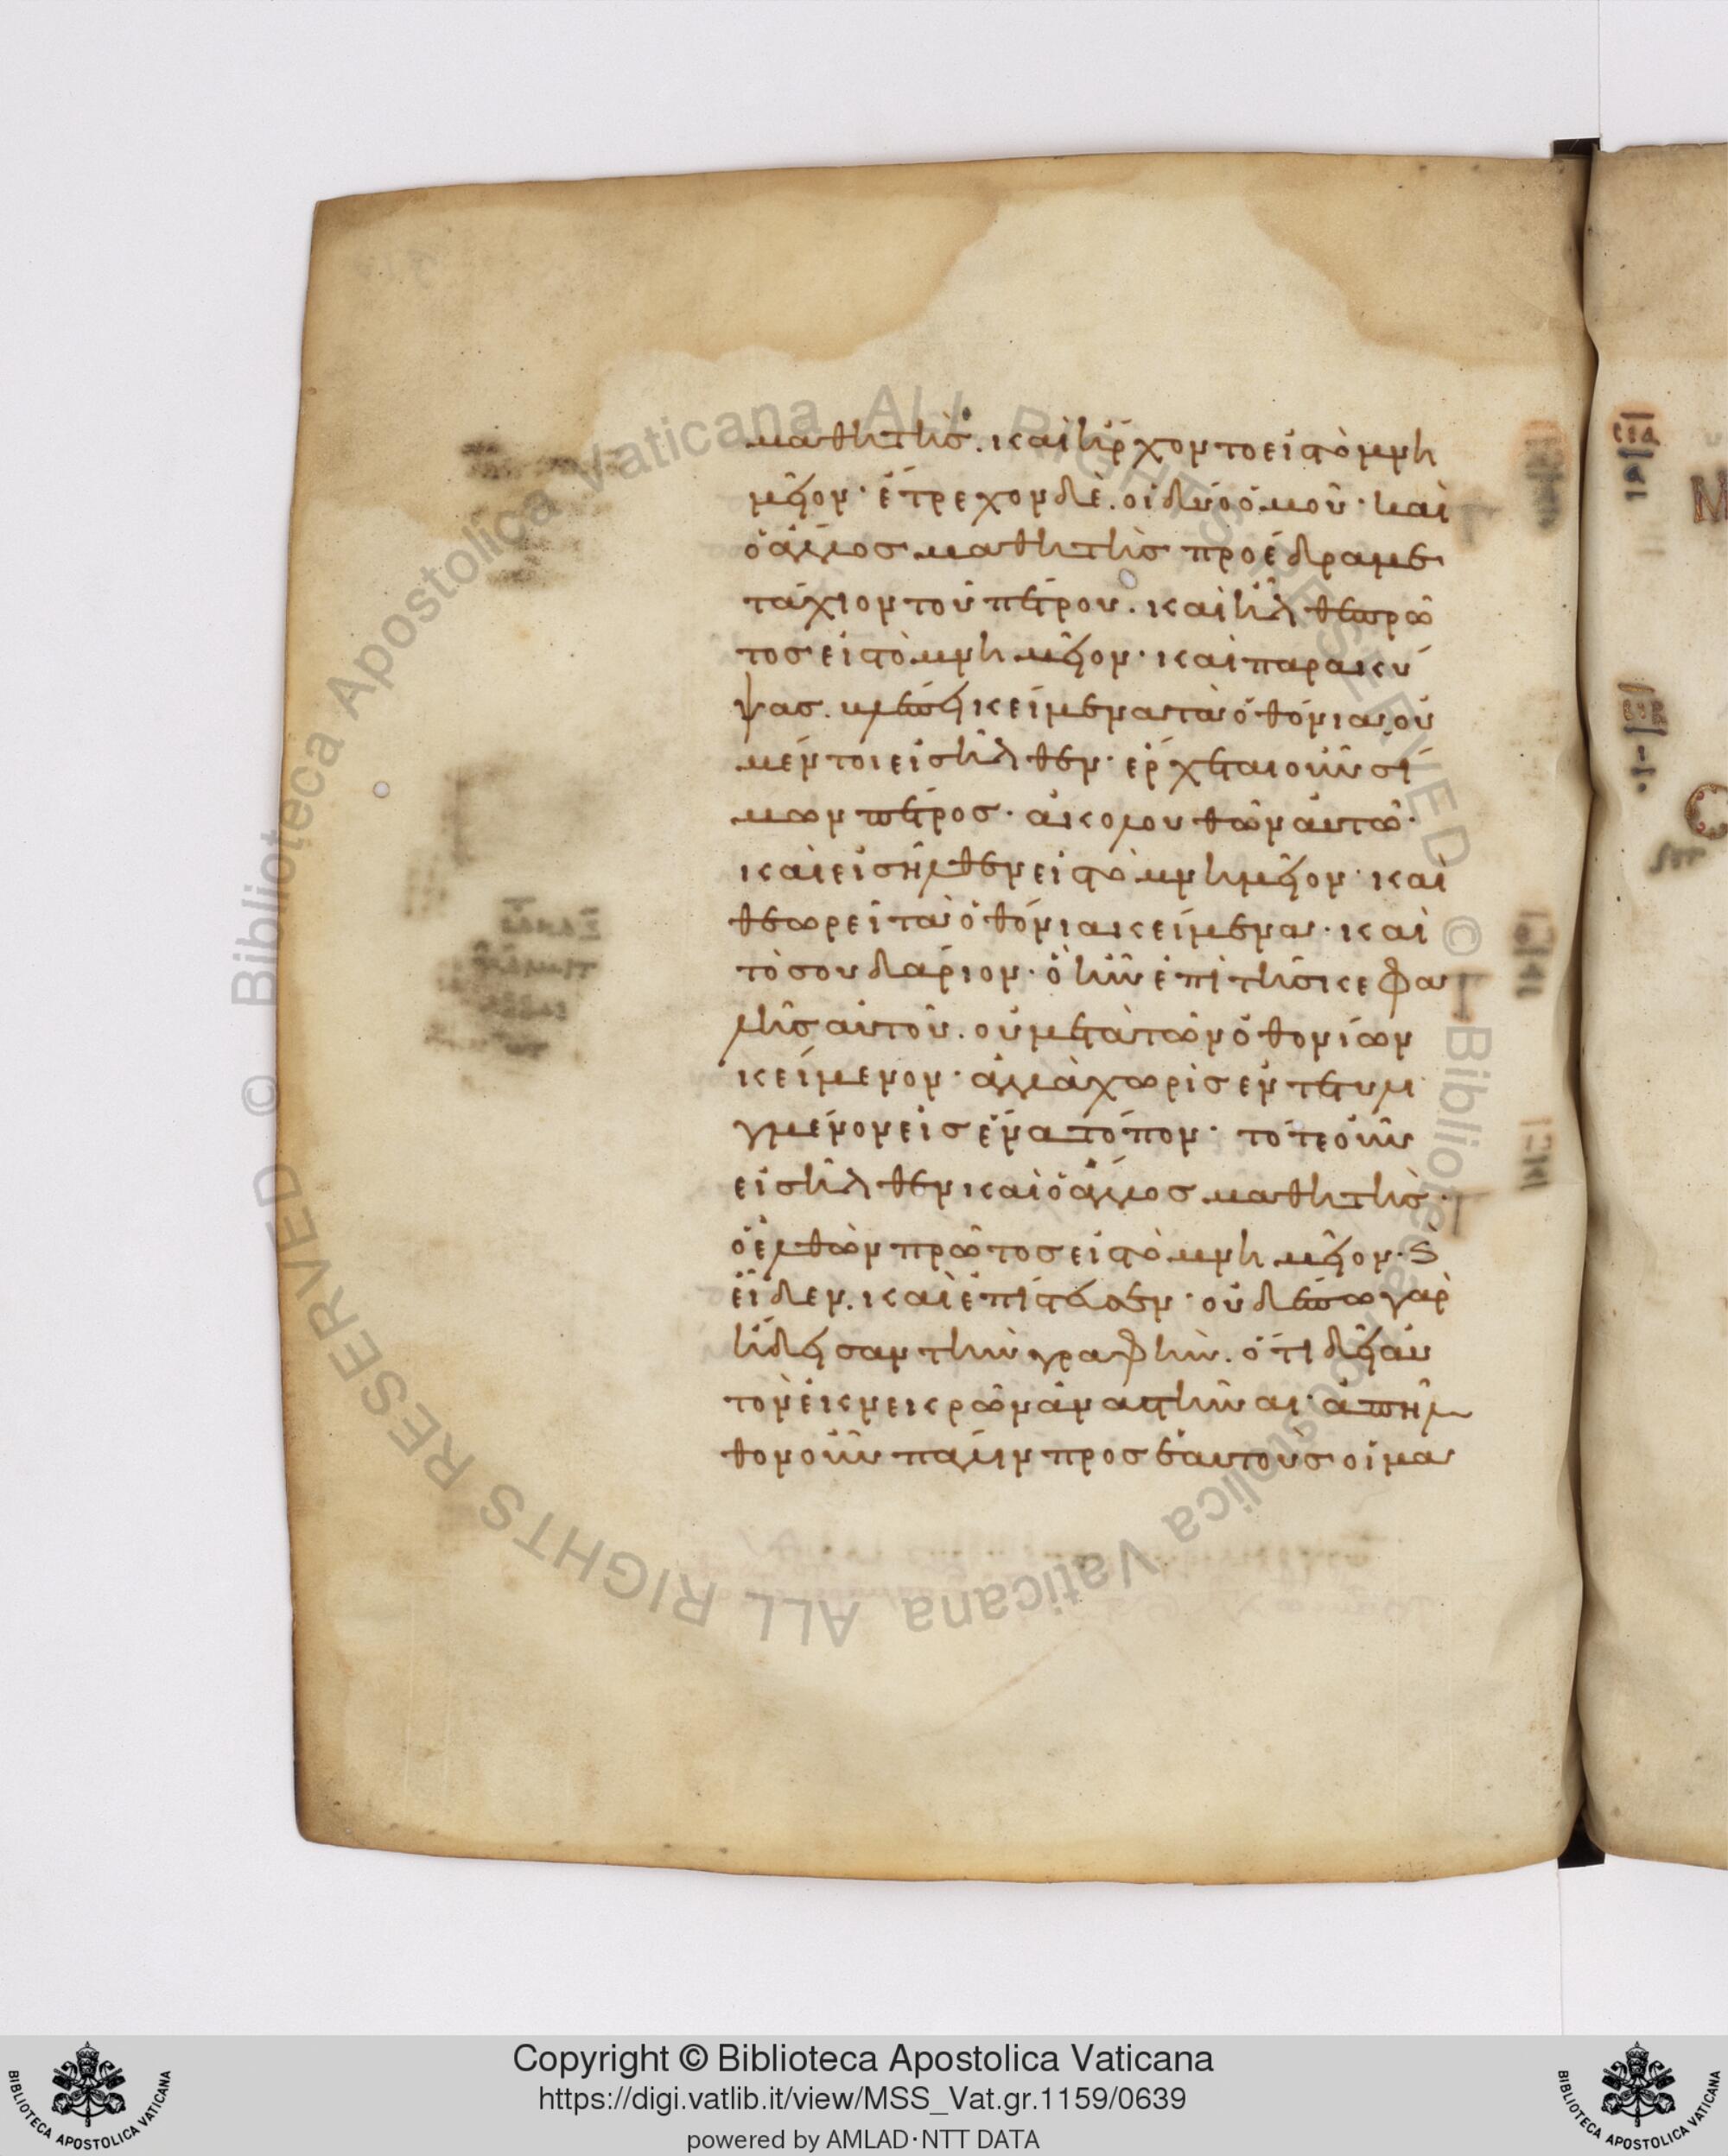 μαθητὴς. καὶ ἤρχοντο εἰς τὸ μνη
μεῖον· ἔτρεχον δὲ. οἱ δύο ὁμοῦ· καὶ
ὁ ἄλλος μαθητὴς προέδραμε
τάχιον τοῦ πέτρου. καὶ ἦλθε πρῶ
τος εἰς τὸ μνημεῖον· καὶ παρακύ
ψας. βλέπει κείμενα τὰ ὀθόνια, οὐ
μέντοι εἰσῆλθεν· ἔρχεται οὖν σί
μων πέτρος· ἀκολουθῶν αὐτῶ·
καὶ εἰσῆλθεν εἰς τὸ μνημεῖον· καὶ
θεωρεῖ τὰ ὀθόνια κείμενα· καὶ
τὸ σουδάριον· ὃ ἦν ἐπὶ τῆς κεφα
λῆς αὐτοῦ. οὐ μετὰ τῶν ὀθονίων
κείμενον· ἀλλὰ χωρὶς ἐντετυλι
γμένον εἰς ἕνα τόπον· τότε οὖν
εἰσῆλθεν καὶ ὁ ἄλλος μαθητὴς·
ὁ ἐλθὼν πρῶτος εἰς τὸ μνημεῖον· ϗ
εἶδεν. καὶ ἐπίστευσεν· οὐδέπω γὰρ
ἤδεισαν τὴν γραφὴν. ὅτι δεῖ αὐ
τὸν ἐκ νεκρῶν ἀναστῆναι· ἀπῆλ
θον οὖν πάλιν πρὸς ἑαυτοὺς οἱ μα
Copyright © Biblioteca Apostolica Vaticana
https://digi.vatlib.it/view/MSS_Vat.gr.1159/0639
powered by AMLAD·NTT DATA
BIBLIOTECA APOSTOLICA VATICANA
BIBLIOTECA APOSTOLICA VATICANA
© Biblioteca Apostolica Vaticana ALL RIGHTS RESERVED © Biblioteca Apostolica Vaticana ALL RIGHTS RESERVED